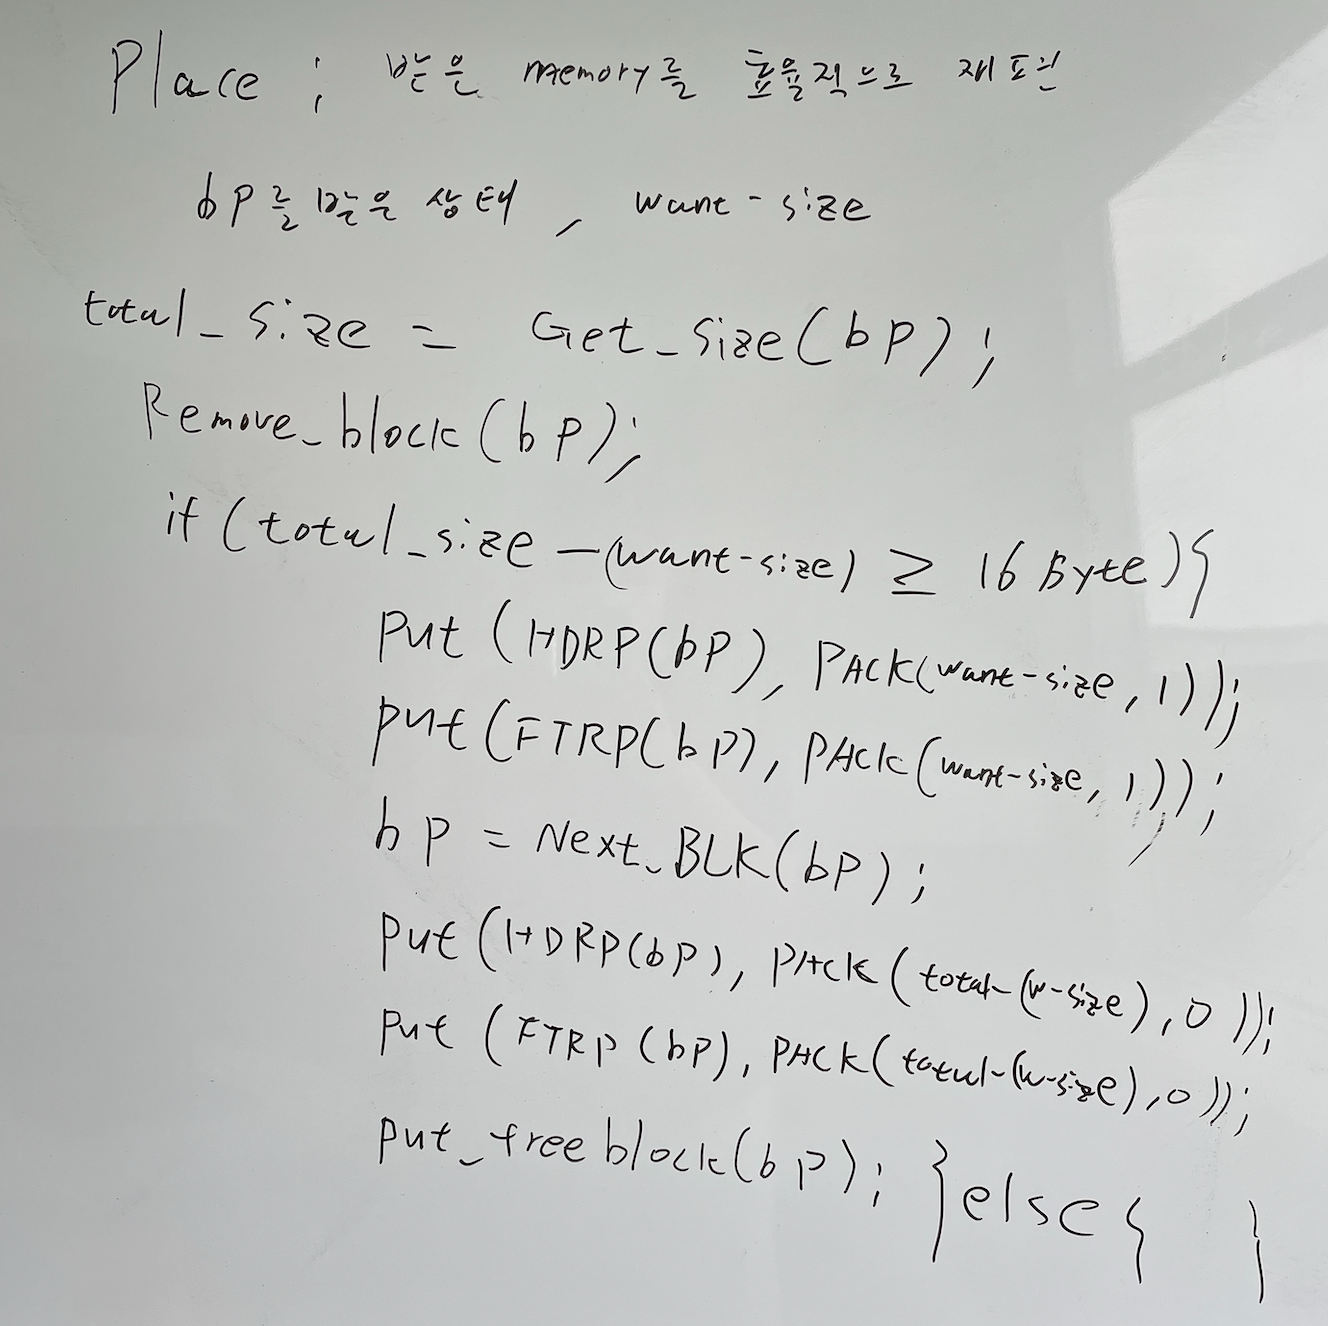 Place ; 받은 memory를 효율적으로 재포완
bp를 받은 상태, want-size
total_size = Get_Size(bp);
Remove_block(bp);
if (total_size - (want-size) ≥ 16 Byte){
Put (HDRP(bp), PACK(want-size, 1));
put (FTRP(bp), PACK(want-size, 1));
bp = Next_BLK(bp);
Put (HDRP(bp), PACK(total-(w-size), 0));
Put (FTRP(bp), PACK(total-(w-size), 0));
put_free block(bp); }else{ }